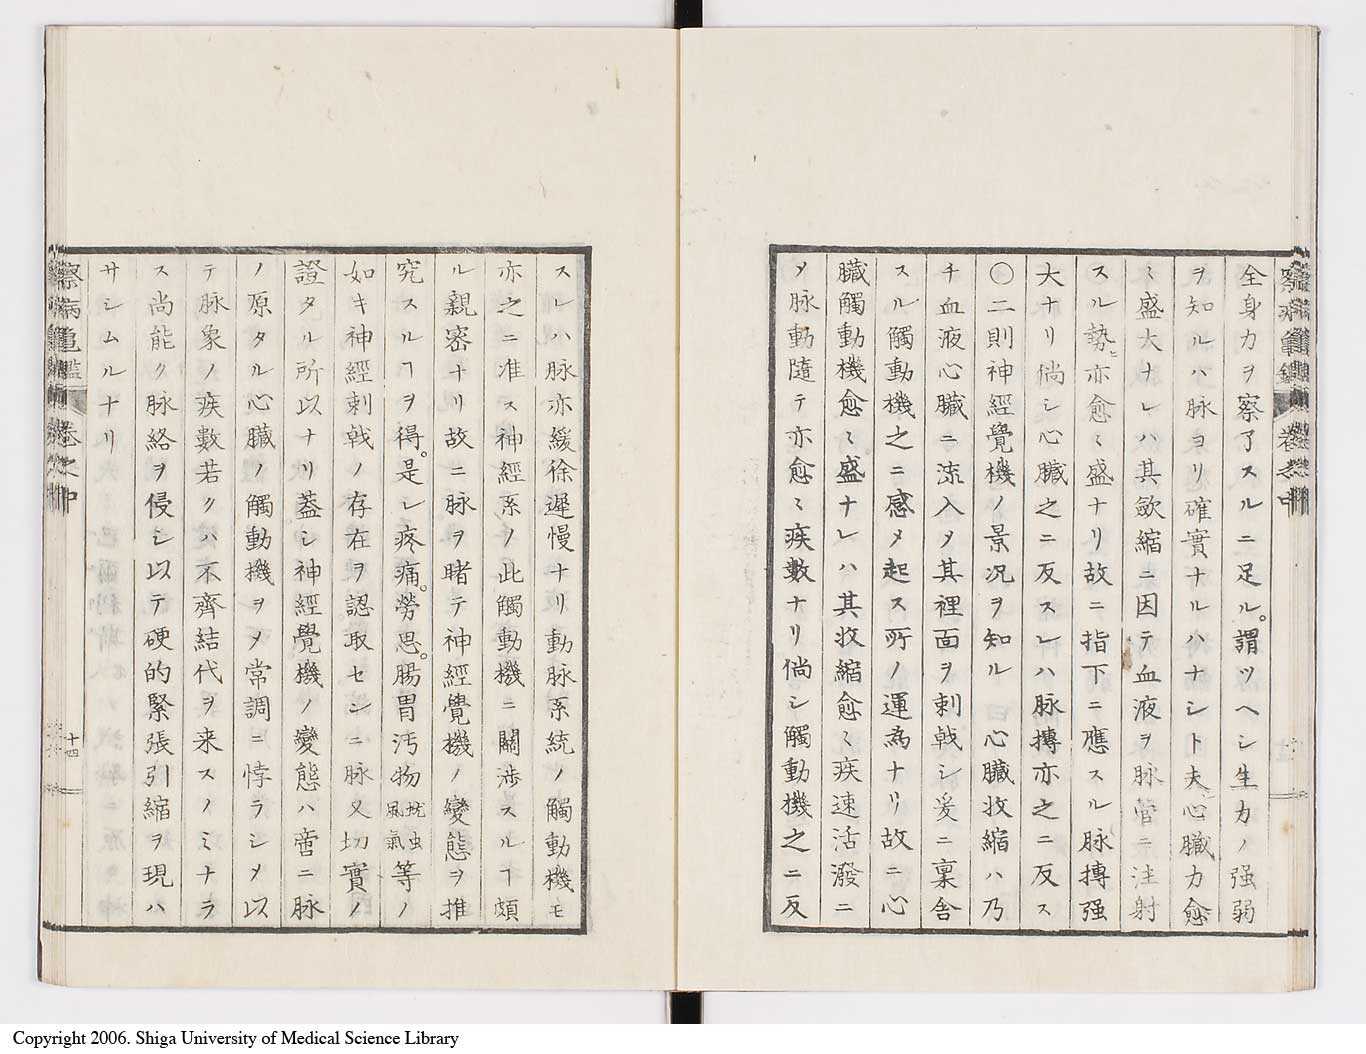 全身力ヲ察了スルニ足ル。謂ツヘシ生力ノ强弱
ヲ知ルハ脉ヨリ確實ナルハナシト夫心臓力愈
ミ盛大ナレハ其歛縮ニ因テ血液ヲ脉管ニ注射
スル勢ヒ亦愈ミ盛ナリ故ニ指下ニ應スル脉搏强
大ナリ倘シ心臓之ニ反スレハ脉搏亦之ニ反ス
〇二則神經覺機ノ景况ヲ知ル 曰心臓收縮ハ乃
チ血液心臓ニ流入乄其裡面ヲ刺戟シ爰ニ稟舎
スル觸動機之ニ感乄起ス所ノ運為ナリ故ニ心
臓觸動機愈ミ盛ナレハ其收縮愈ミ疾速活潑ニ
乄脉動隨テ亦愈ミ疾數ナリ倘シ觸動機之ニ反
スレハ脉亦緩徐遲慢ナリ動脉系統ノ觸動機モ
亦之ニ准ス神經系ノ此觸動機ニ關渉スルヿ頗
ル親密ナリ故ニ脉ヲ睹テ神經覺機ノ變態ヲ推
究スルヿヲ得。是レ疼痛。勞思。腸胃汚物蚘虫風氣等ノ
如キ神經刺戟ノ存在ヲ認取セシニ脉又切實ノ
證タル所以ナリ蓋シ神經覺機ノ變態ハ啻ニ脉
ノ原タル心臓ノ觸動機ヲ乄常調ニ悖ラシメ以
テ脉象ノ疾數若クハ不齊結代ヲ来スノミナラ
ス尚能ク脉絡ヲ侵シ以テ硬的緊張引縮ヲ現ハ
サシムルナリ
察病亀鑑 卷之中
十四
Copyright 2006. Shiga University of Medical Science Library